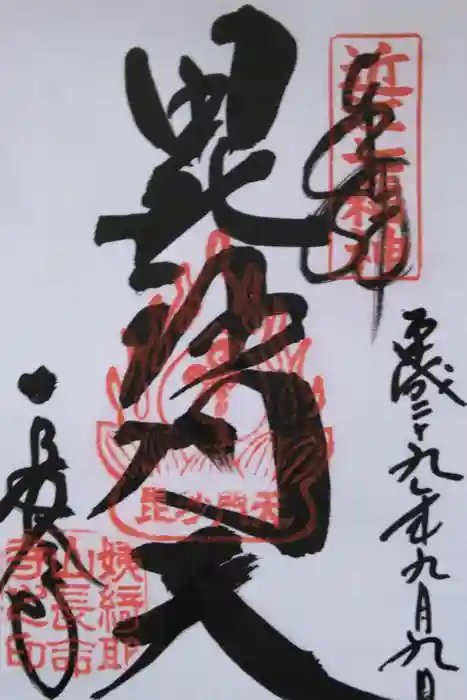 奉拝
近江七福神
平成二十九年九月九日
毘沙門天
毘沙門天
長命寺
姨綺耶
山長命
寺之印